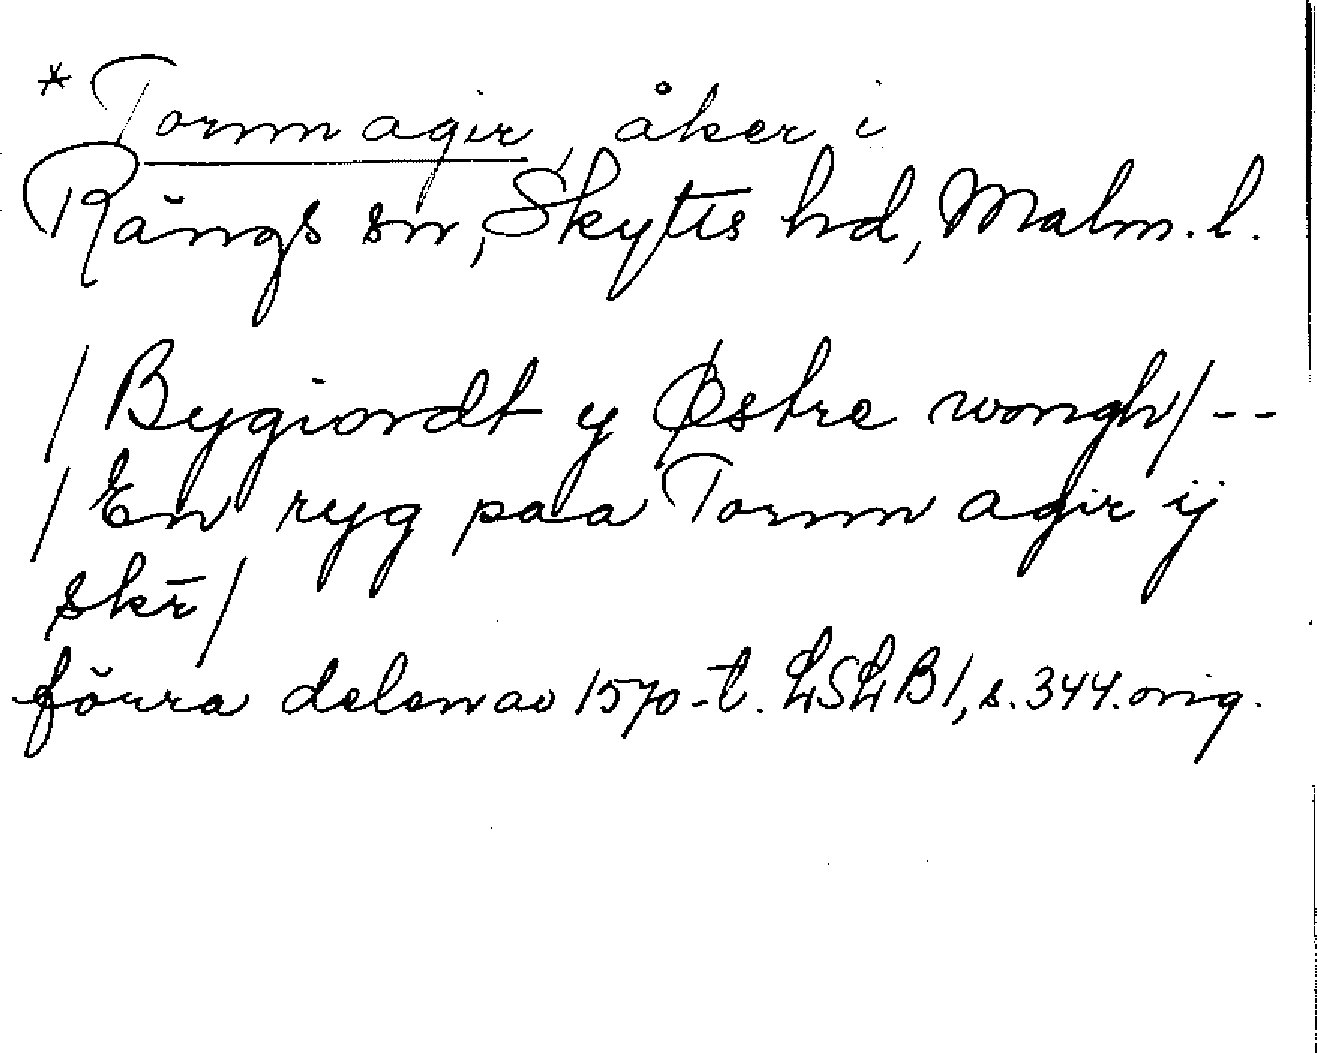 * Tornn agir, åker i
Rängs sn, Skytts hd, Malm. l.
/ Bygiordt y Østre wongh / --
/ En ryg paa Tornn agir ij
skr̄ /
förra delen av 1570-t. LSLB 1, s. 344. orig.